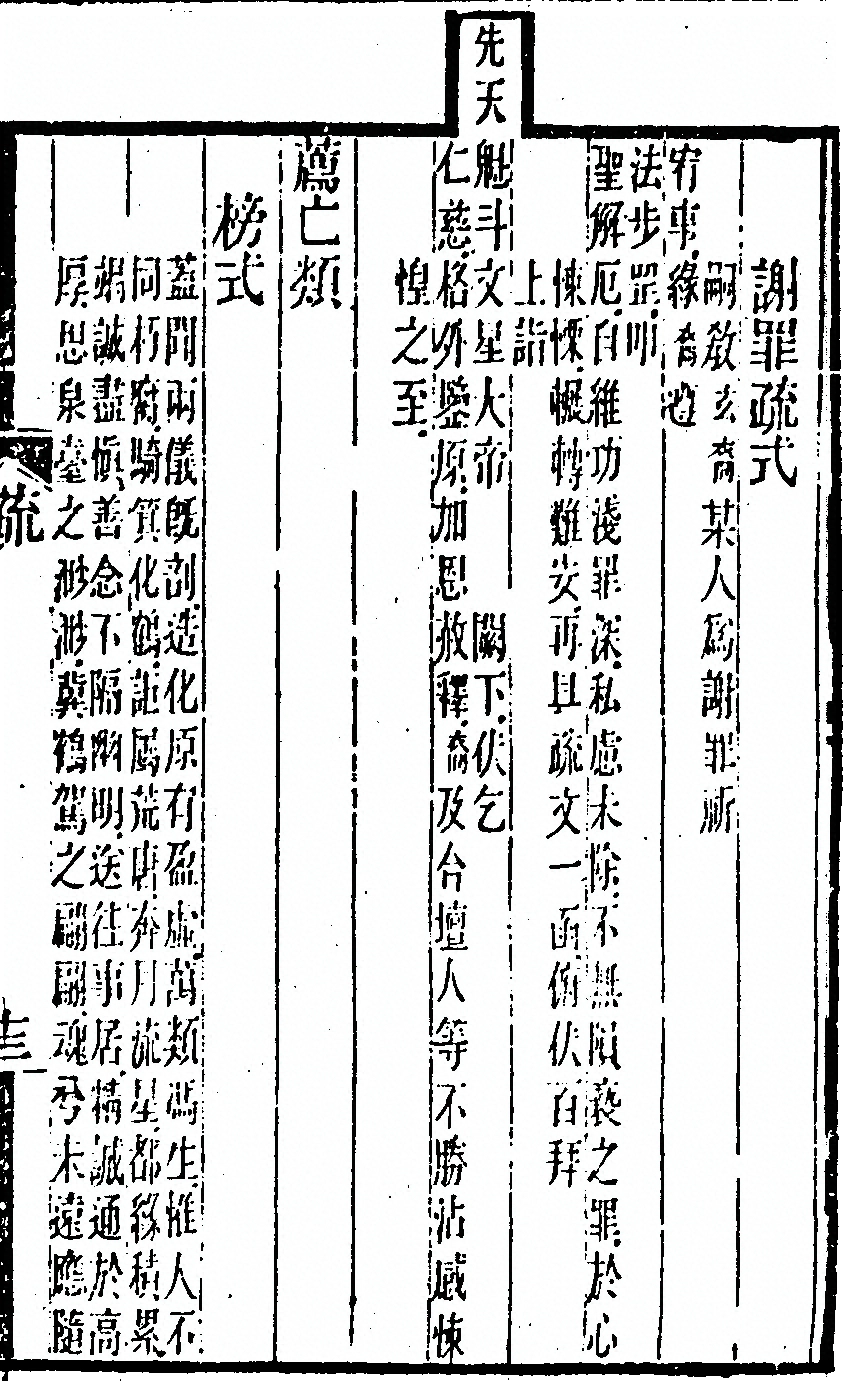 謝罪疏式
嗣教玄裔某人爲謝罪祈
宥事緣裔遵
法步罡叩
聖解厄自維功淺罪深私慮未除不無隕褻之罪於心
悚慄輾轉難安再具疏文一函俯伏百拜
上詣
先天魁斗文星大帝 闕下伏乞
仁慈格外鑒原加恩赦釋裔及台壇人等不勝沾感悚
惶之至
薦亡類
榜式
蓋聞兩儀旣剖造化原有盈虛萬類馮生惟人不
同朽腐騎箕化鶴詎屬荒唐奔月流星都緣積累
竭誠盡愼善念不隔幽明送往事居精誠通於高
厚思泉臺之渺渺冀鶴駕之翩翩魂兮未遠應隨
疏